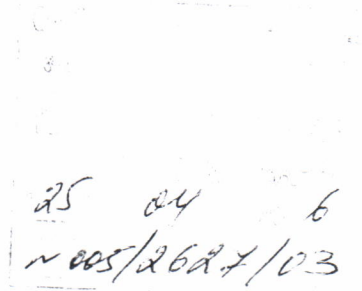 25 04 6
N 005/2627/03